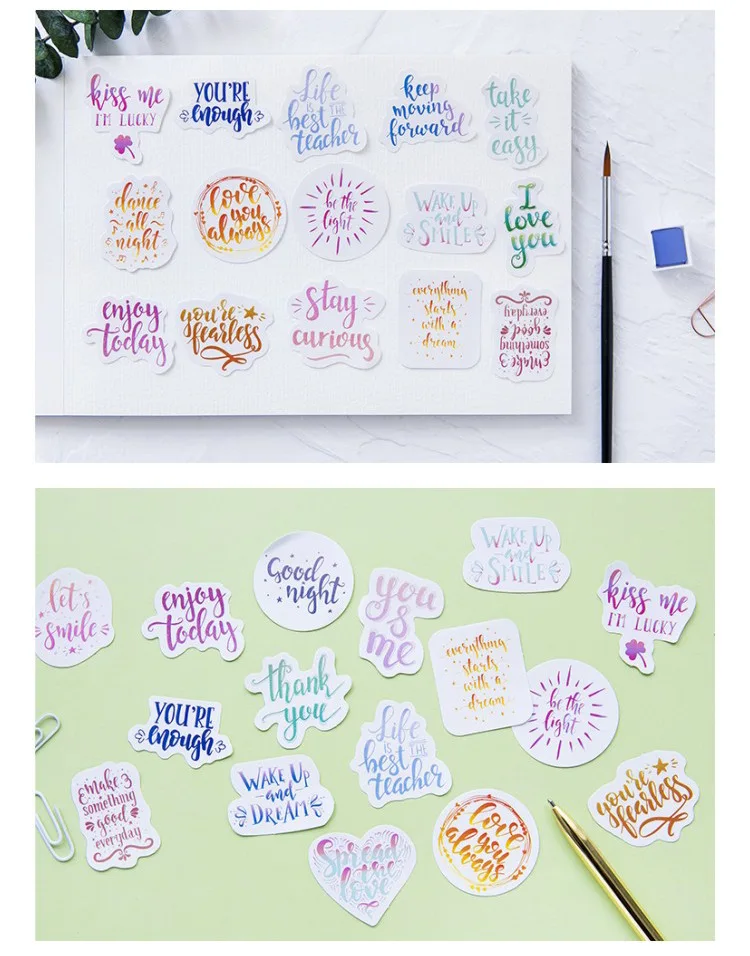 kiss me
I'M LUCKY
YOU'RE
enough
Life
IS THE
best
teacher
keep
moving
forward
take
it
easy
dance
all
night
love
you
always
be the
light
WAKE UP
and
SMILE
I
love
you
enjoy
today
you're
fearless
stay
curious
everything
starts
with a
dream
make
something
good
everyday
let's
smile
enjoy
today
Good
night
you
is
me
WAKE UP
and
SMILE
kiss me
I'M LUCKY
YOU'RE
enough
thank
you
Life
IS THE
best
teacher
everything
starts
with a
dream
be the
light
make
something
good
everyday
WAKE UP
and
DREAM
Spread
the
love
love
you
always
you're
fearless